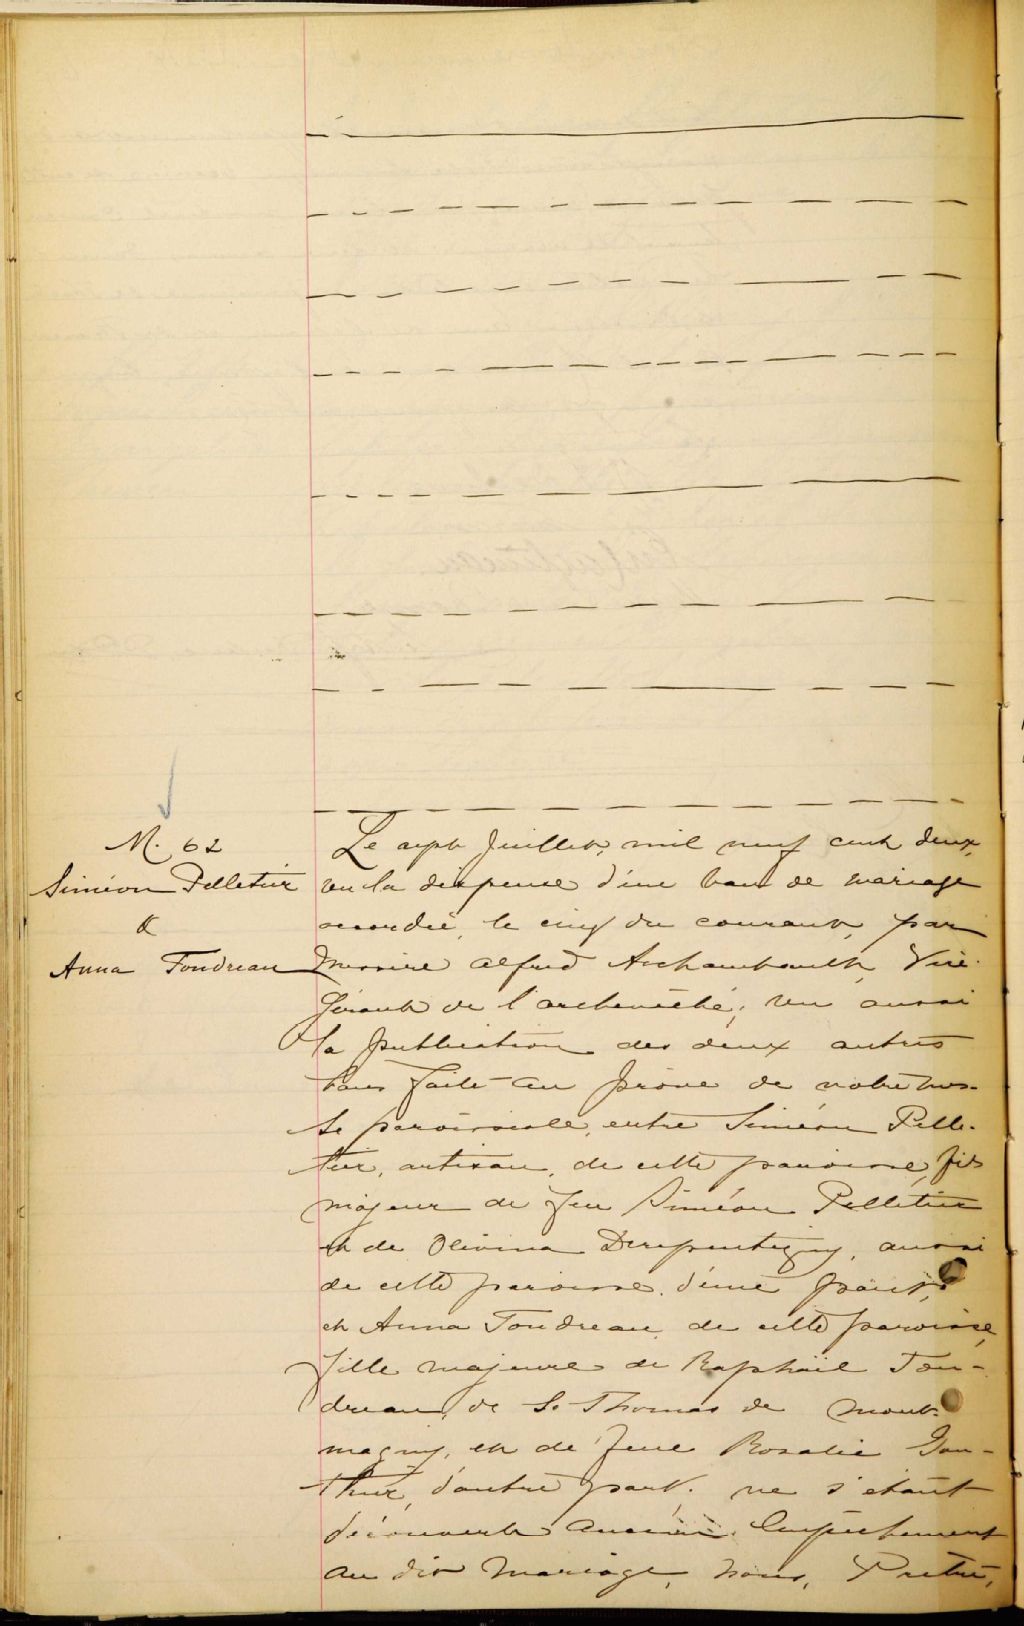 M. 62
Siméon Pelletier
&
Anna Fondreau
Le sept Juillet, mil neuf cent deux,
vu la dispense d'un ban de mariage
accordée, le cinq du courant, par
Messire Alfred Archambault, Vice-
Gérant de l'archevêché; vu aussi
la publication des deux autres
bans faite au prône de notre mes-
se paroissiale, entre Siméon Pelle-
tier, artisan, de cette paroisse, fils
majeur de feu Siméon Pelletier
et de Olivina Derepentigny, aussi
de cette paroisse, d'une part,
et Anna Fondreau, de cette paroisse,
fille majeure de Raphaël Fon-
dreau, de St Thomas de Mont-
magny, et de feue Rosalie Gon-
thier, d'autre part. ne s'étant
découvert aucun empêchement
au dit mariage, nous, Prêtre,